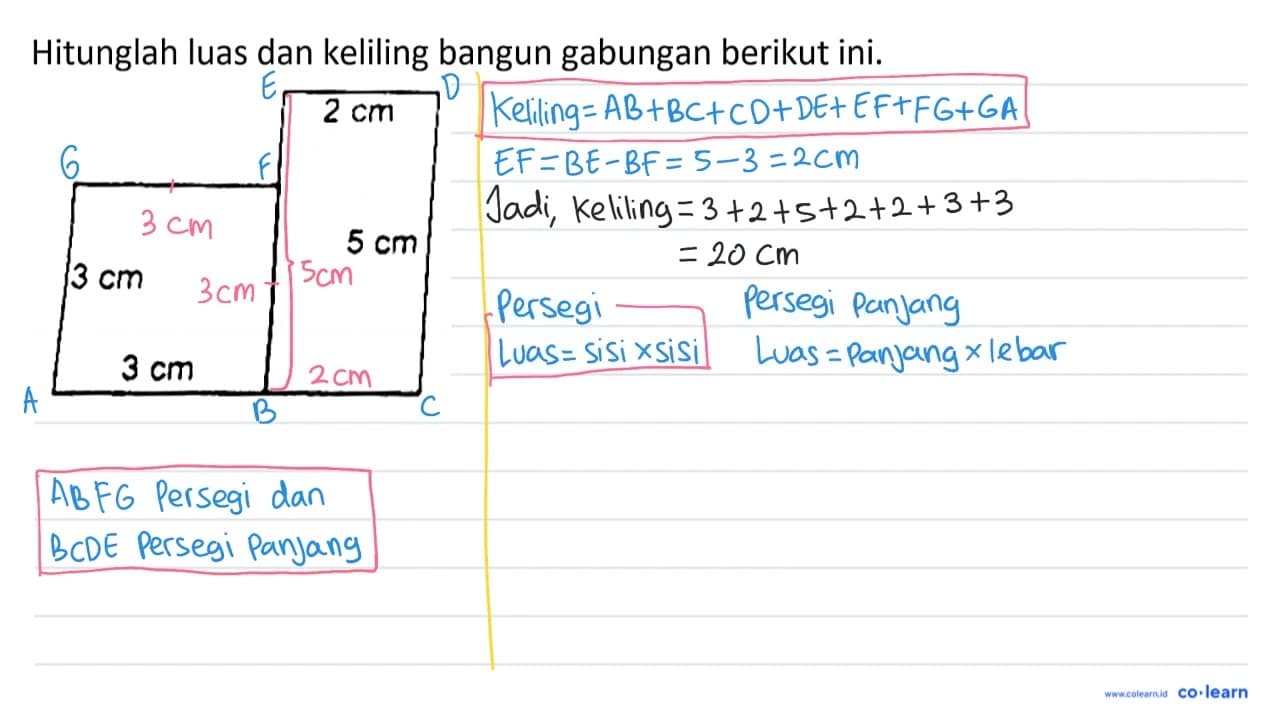 Hitunglah luas dan keliling bangun gabungan berikut ini.
E
D
2 cm
G
F
3 cm
5 cm
3 cm
3 cm
5cm
3 cm
2 cm
A
B
C
ABFG Persegi dan
BCDE Persegi Panjang
Keliling = AB+BC+CD+DE+EF+FG+GA
EF = BE-BF = 5-3 = 2 cm
Jadi, Keliling = 3+2+5+2+2+3+3
= 20 cm
Persegi
Luas = sisi x sisi
Persegi Panjang
Luas = Panjang x lebar
www.colearn.id co·learn